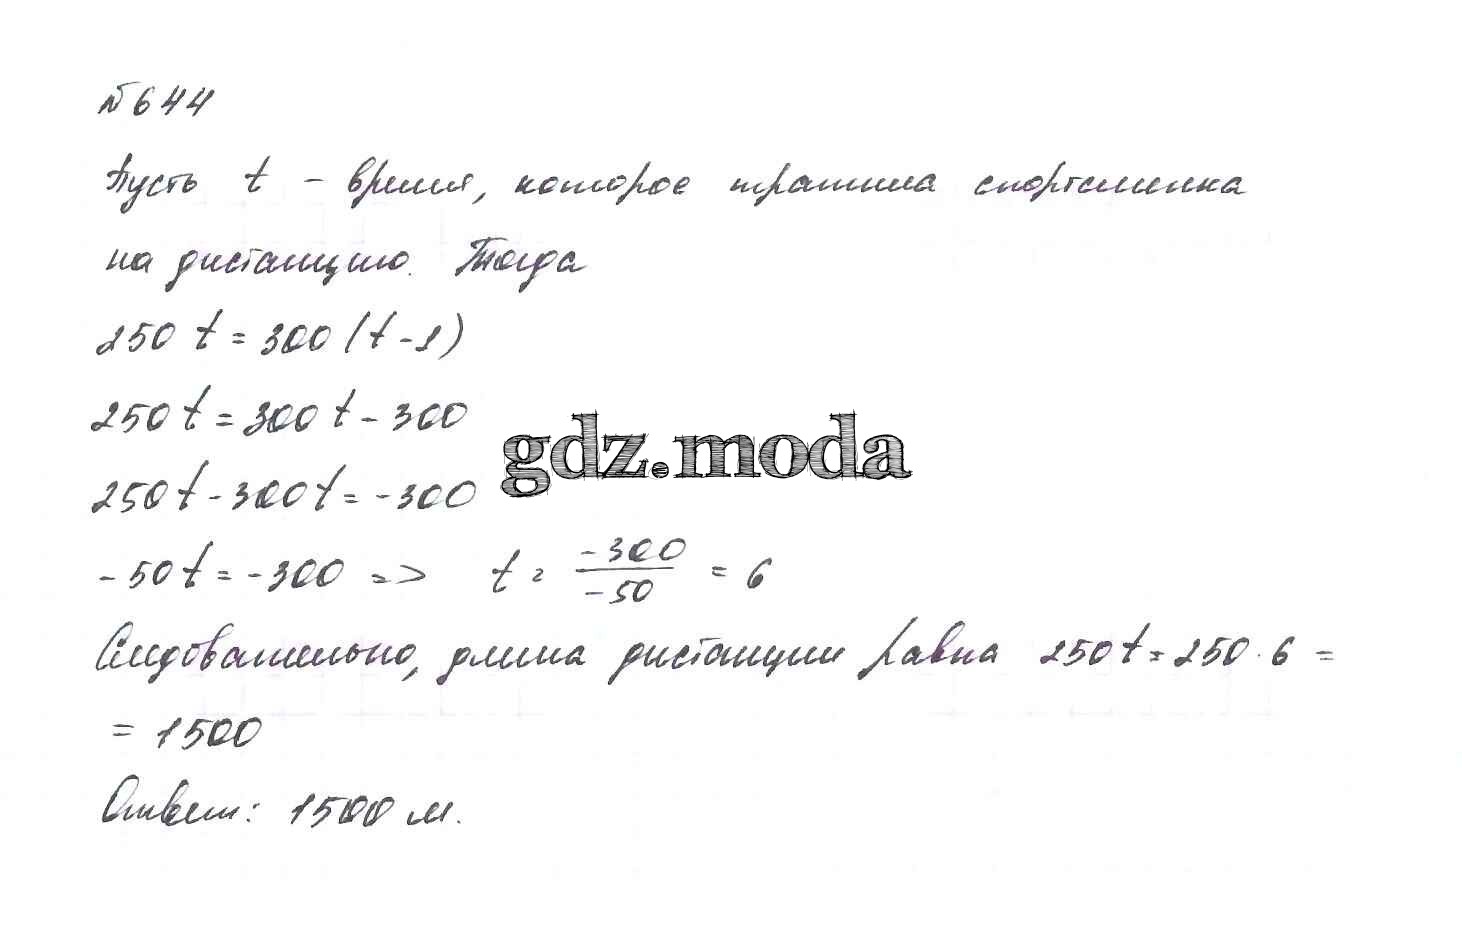 №644
Пусть t – время, которое тратила спортсменка
на дистанцию. Тогда
250 t = 300 (t - 1)
250 t = 300 t - 300
gdz.moda
250 t - 300 t = -300
-50 t = -300 => t = -300/-50 = 6
Следовательно, длина дистанции равна 250 t = 250 · 6 =
= 1500
Ответ: 1500 м.